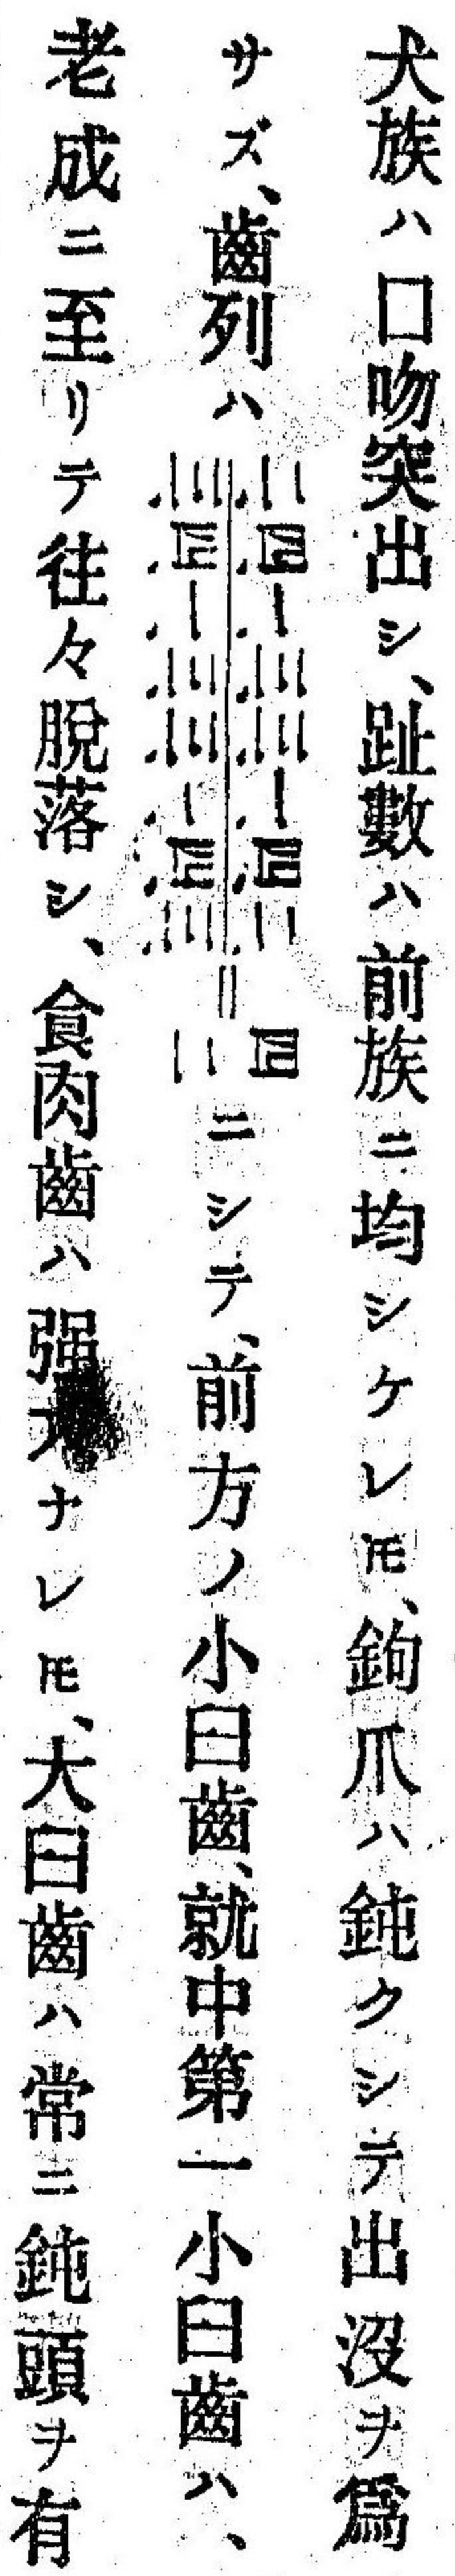 犬族ハ口吻突出シ、趾數ハ前族ニ均シケレ𪜈、鉤爪ハ鈍クシテ出沒ヲ爲
サズ、齒列ハ二.四.一.三.三.一.四.二/三.四.一.三.三.一.四.三=四二ニシテ、前方ノ小臼齒、就中第一小臼齒ハ、
老成ニ至リテ往々脫落シ、食肉齒ハ强大ナレ𪜈、大臼齒ハ常ニ鈍頭ヲ有